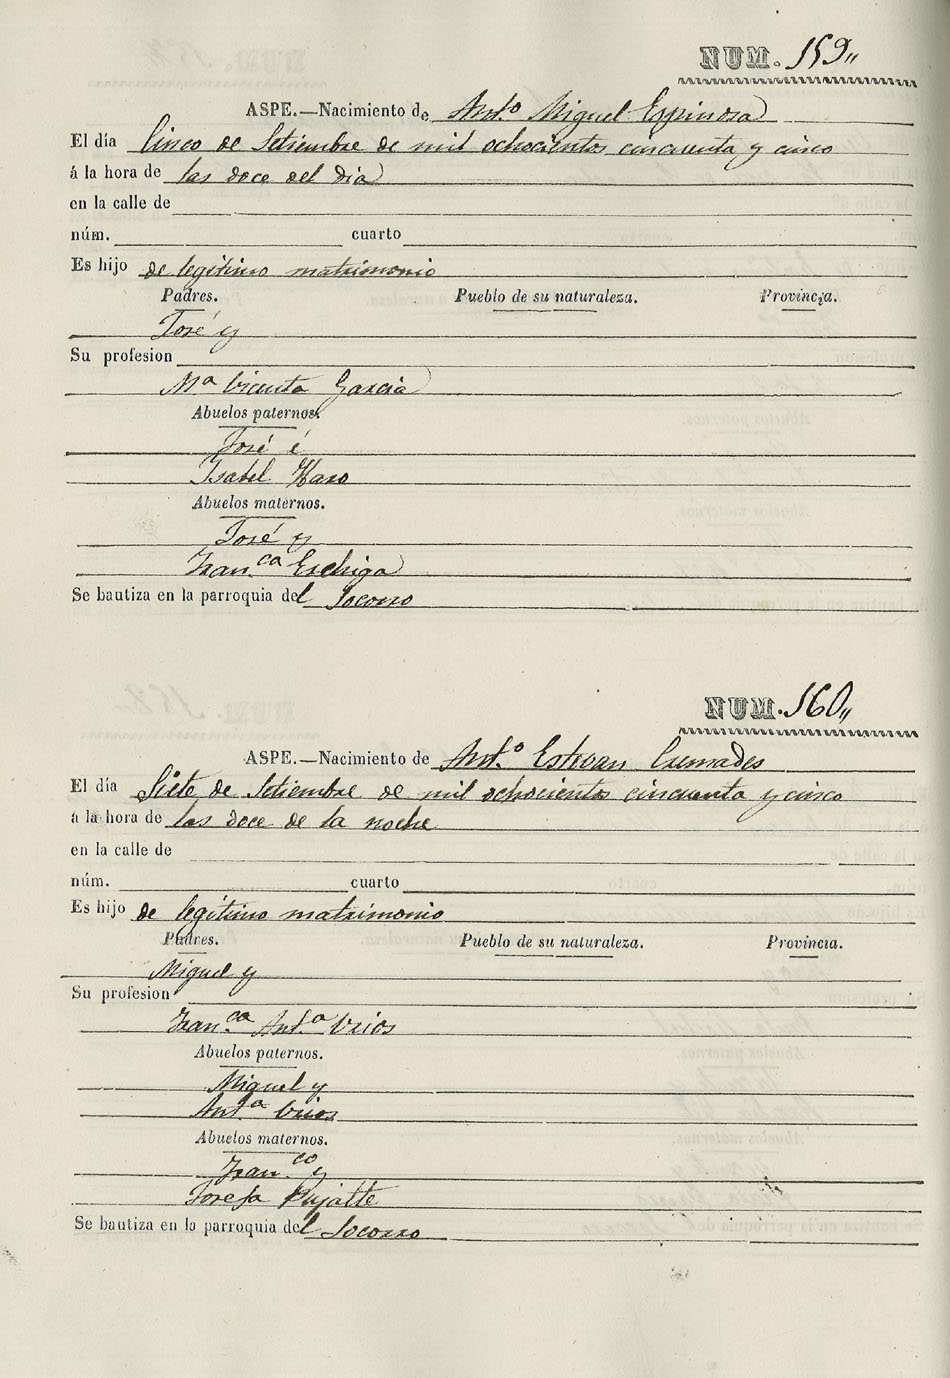 NUM. 159,,
ASPE.—Nacimiento de Ant.º Miguel Espinosa
El día Cinco de Setiembre de mil ochocientos cincuenta y cinco
á la hora de las doce del dia
en la calle de
núm. cuarto
Es hijo de legítimo matrimonio
Padres. Pueblo de su naturaleza. Provincia.
José y
Su profesion
M.ª Vicenta Garcia
Abuelos paternos.
José é
Isabel Haro
Abuelos maternos.
José y
Fran.ca
Se bautiza en la parroquia del Socorro
NUM. 160,,
ASPE.—Nacimiento de Ant.º Estevan Cremades
El día Siete de Setiembre de mil ochocientos cincuenta y cinco
á la hora de las doce de la noche
en la calle de
núm. cuarto
Es hijo de legítimo matrimonio
Padres. Pueblo de su naturaleza. Provincia.
Miguel y
Su profesion
Fran.ca Ant.ª Urios
Abuelos paternos.
Miguel y
Ant.ª Urios
Abuelos maternos.
Fran.co y
Josefa Pujalte
Se bautiza en la parroquia del Socorro